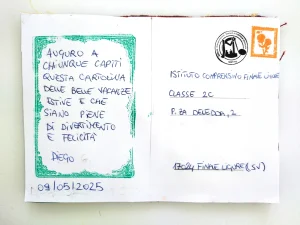 AUGURO A
CHIUNQUE CAPITI
QUESTA CARTOLINA
DELLE BELLE VACANZE
ESTIVE E CHE
SIANO PIENE
DI DIVERTIMENTO
E FELICITÀ
DEGO
09/05/2025
ISTITUTO COMPRENSIVO FINALE LIGURE
CLASSE 2C
P.ZA DELEDDA, 2
17024 FINALE LIGURE (SV)